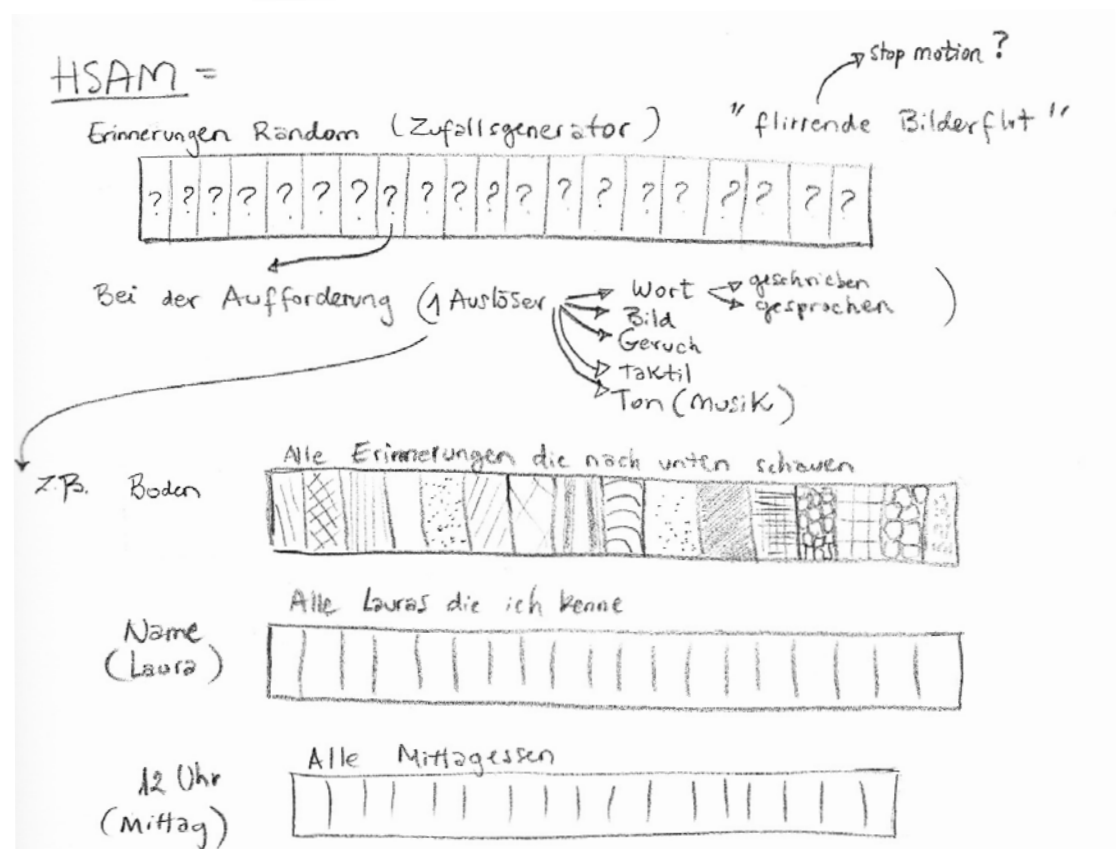 stop motion?
HSAM =
Erinnerungen Random (Zufallsgenerator) "flirrende Bilderflut"
? ? ? ? ? ? ? ? ? ? ? ? ? ? ? ? ? ? ? ?
Bei der Aufforderung (1 Auslöser Wort geschrieben )
gesprochen
Bild
Geruch
Taktil
Ton (Musik)
Alle Erinnerungen die nach unten schauen
z.B. Boden
Alle Lauras die ich kenne
Name
(Laura)
Alle Mittagessen
12 Uhr
(Mittag)